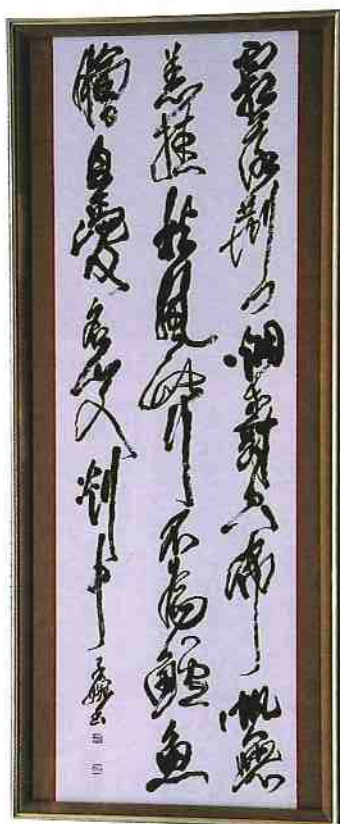 霜落荊門烟樹空布帆無
恙挂秋風此行不為鱸魚
膾自愛名山入剡中